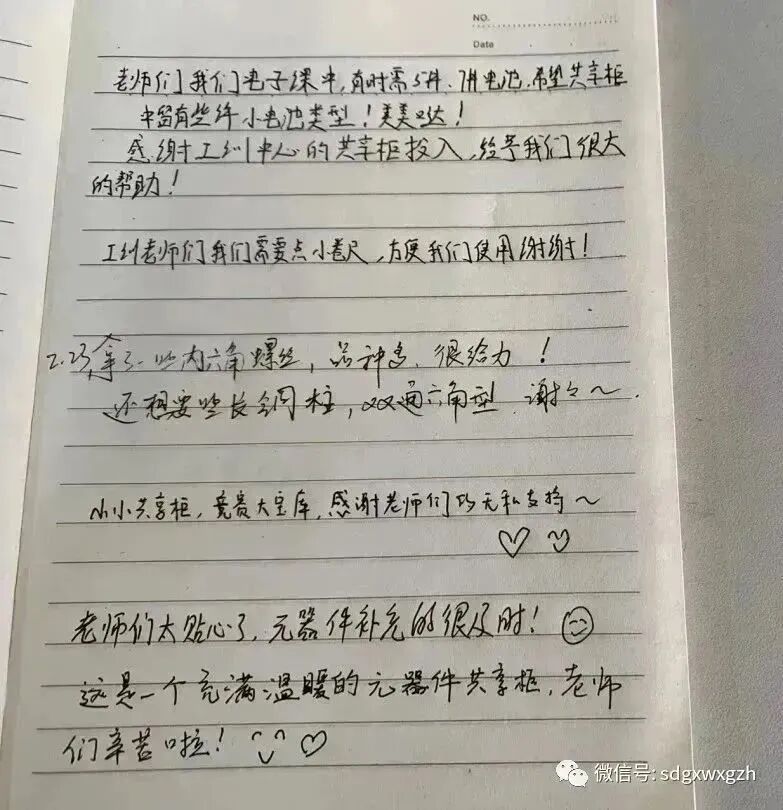 NO.
Date
老师们我们电子课中,有时需5件、7件电池.希望共享柜
中留有些许小电池类型!美美哒!
感谢工训中心的共享柜投入,给予我们很大
的帮助!
工训老师们我们需要点小卷尺,方便我们使用谢谢!
2.23拿了一些内六角螺丝,品种多,很给力!
还想要些长铜柱,双通六角型 谢々~.
小小共享柜,竞赛大宝库,感谢老师们的无私支持~
老师们太贴心了,元器件补充的很及时!
这是一个充满温暖的元器件共享柜,老师
们辛苦啦!
微信号: sdgxwxgzh